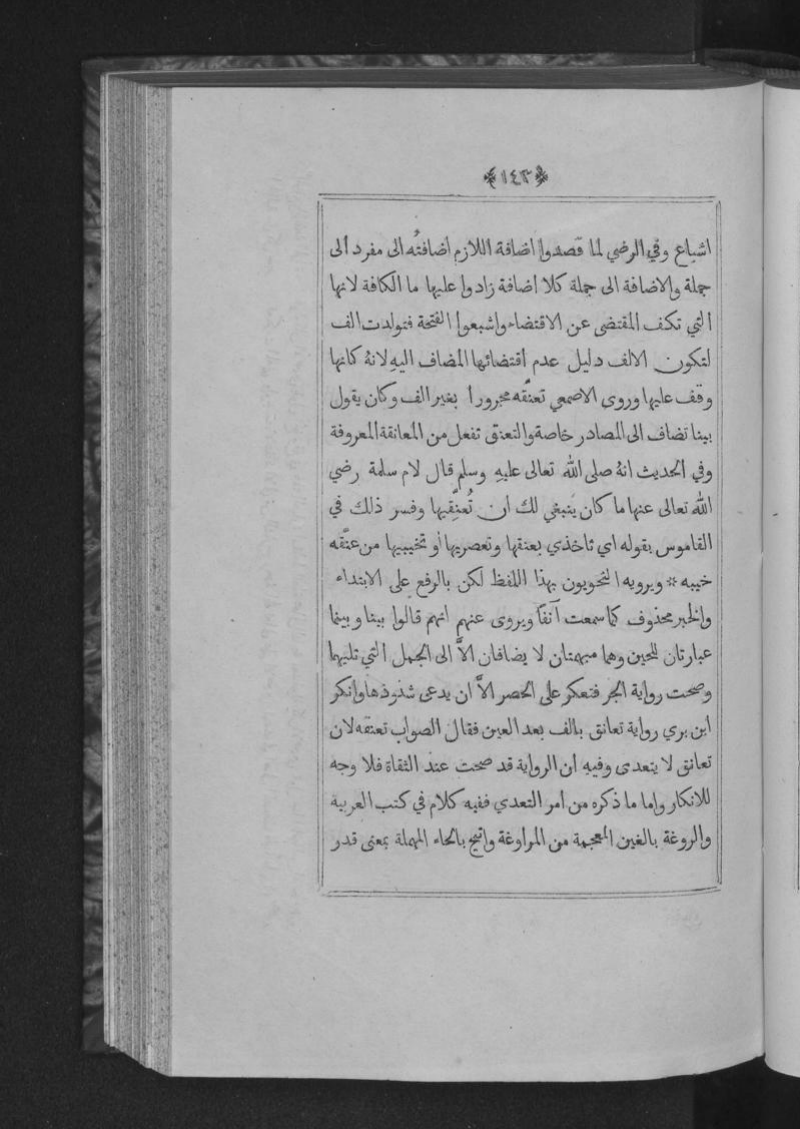 ﴿١٤٣﴾
اشباع وفي الرضي لما قصدوا اضافة اللازم اضافتُه الى مفرد الى
جملة والاضافة الى جملة كلا اضافة زادوا عليها ما الكافة لانها
التي تكف المقتضى عن الاقتضاء واشبعوا الفتحة فتولدت الف
لتكون الالف دليل عدم اقتضائها المضاف اليهِ لانهُ كانها
وقف عليها وروى الاصمعي تعنّقه مجروراً بغير الف وكان يقول
بينا تضاف الى المصادر خاصة والتعنق تفعل من المعانقة المعروفة
وفي الحديث انهُ صلى الله تعالى عليهِ وسلم قال لام سلمة رضي
الله تعالى عنها ما كان ينبغي لك ان تُعنِّقيها وفسر ذلك في
القاموس بقوله اي تاخذي بعنقها وتعصريها او تخيبيها من عنّقه
خيبه * ويرويه النحويون بهذا اللفظ لكن بالرفع على الابتداء
والخبر محذوف كما سمعت آنفاً ويروى عنهم انهم قالوا بينا وبينما
عبارتان للحين وهما مبهمتان لا يضافان الاَّ الى الجمل التي تليهما
وصحت رواية الجر فتعكر على الحصر الاَّ ان يدعى شذوذها وانكر
ابن بري رواية تعانق بالف بعد العين فقال الصواب تعنقه لان
تعانق لا يتعدى وفيهِ ان الرواية قد صحت عند الثقاة فلا وجه
للانكار واما ما ذكره من امر التعدي ففيه كلام في كتب العربية
والروغة بالغين المعجمة من المراوغة واتيح بالحاء المهملة بمعنى قدر